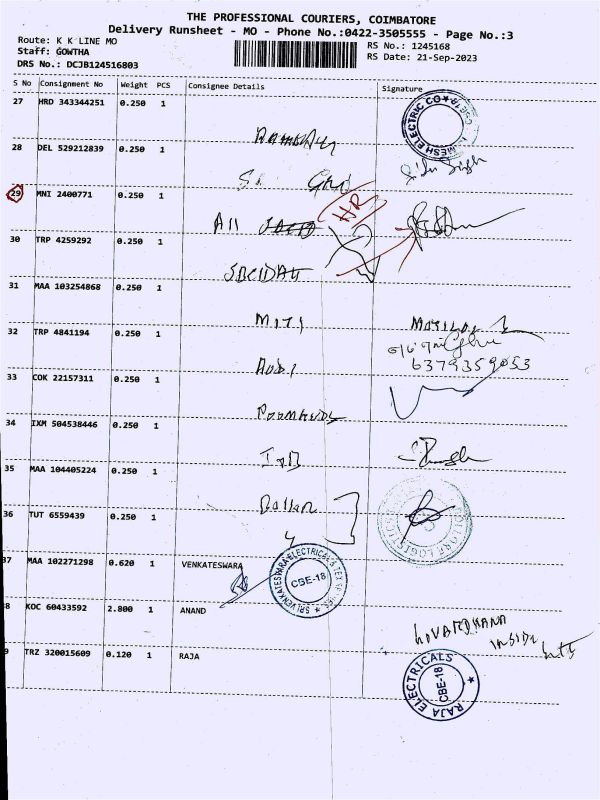 THE PROFESSIONAL COURIERS, COIMBATORE
Delivery Runsheet - MO - Phone No.:0422-3505555 - Page No.:3
Route: K K LINE MO
Staff: GOWTHA
DRS No.: DCJB124516803
RS No.: 1245168
RS Date: 21-Sep-2023
S No Consignment No Weight PCS Consignee Details Signature
27 HRD 343344251 0.250 1
28 DEL 529212839 0.250 1
29 MNI 2400771 0.250 1
All
HR
30 TRP 4259292 0.250 1
31 MAA 103254868 0.250 1
32 TRP 4841194 0.250 1
6379359053
33 COK 22157311 0.250 1
34 IXM 504538446 0.250 1
35 MAA 104405224 0.250 1
Dollar
36 TUT 6559439 0.250 1
37 MAA 102271298 0.620 1 VENKATESWARA
SRI VENKATESWARA ELECTRICAL
CBE-18
38 KOC 60433592 2.800 1 ANAND
39 TRZ 320015609 0.120 1 RAJA
INSIDE
RAJA ELECTRICALS
CBE-18